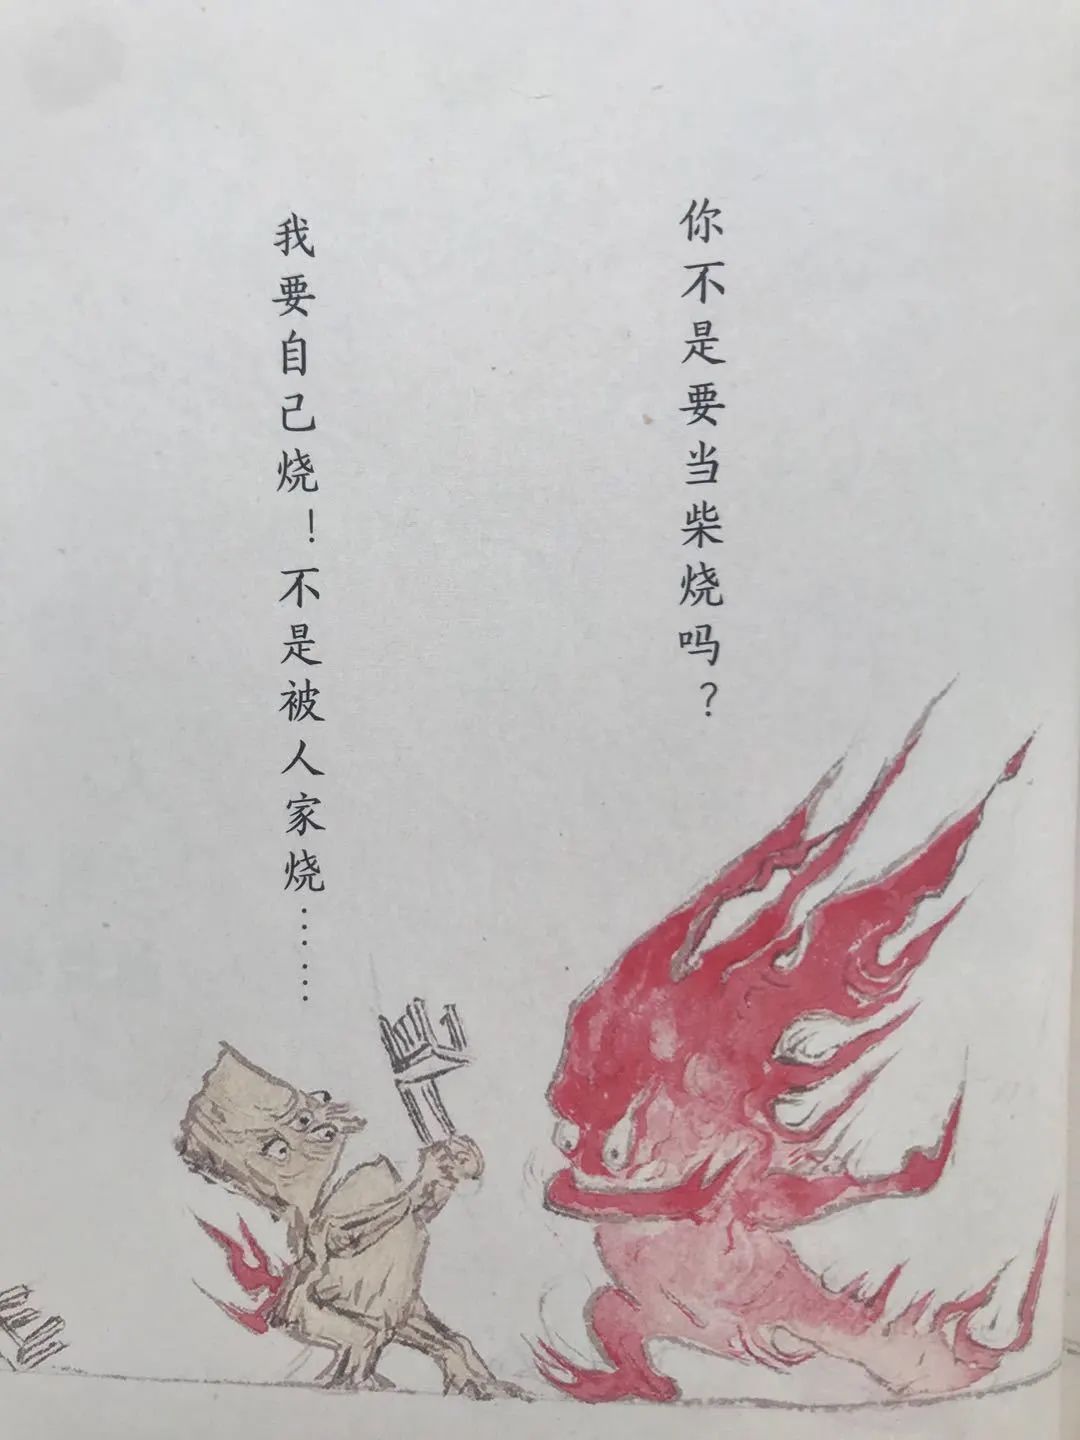 你不是要当柴烧吗？
我要自己烧！不是被人家烧……